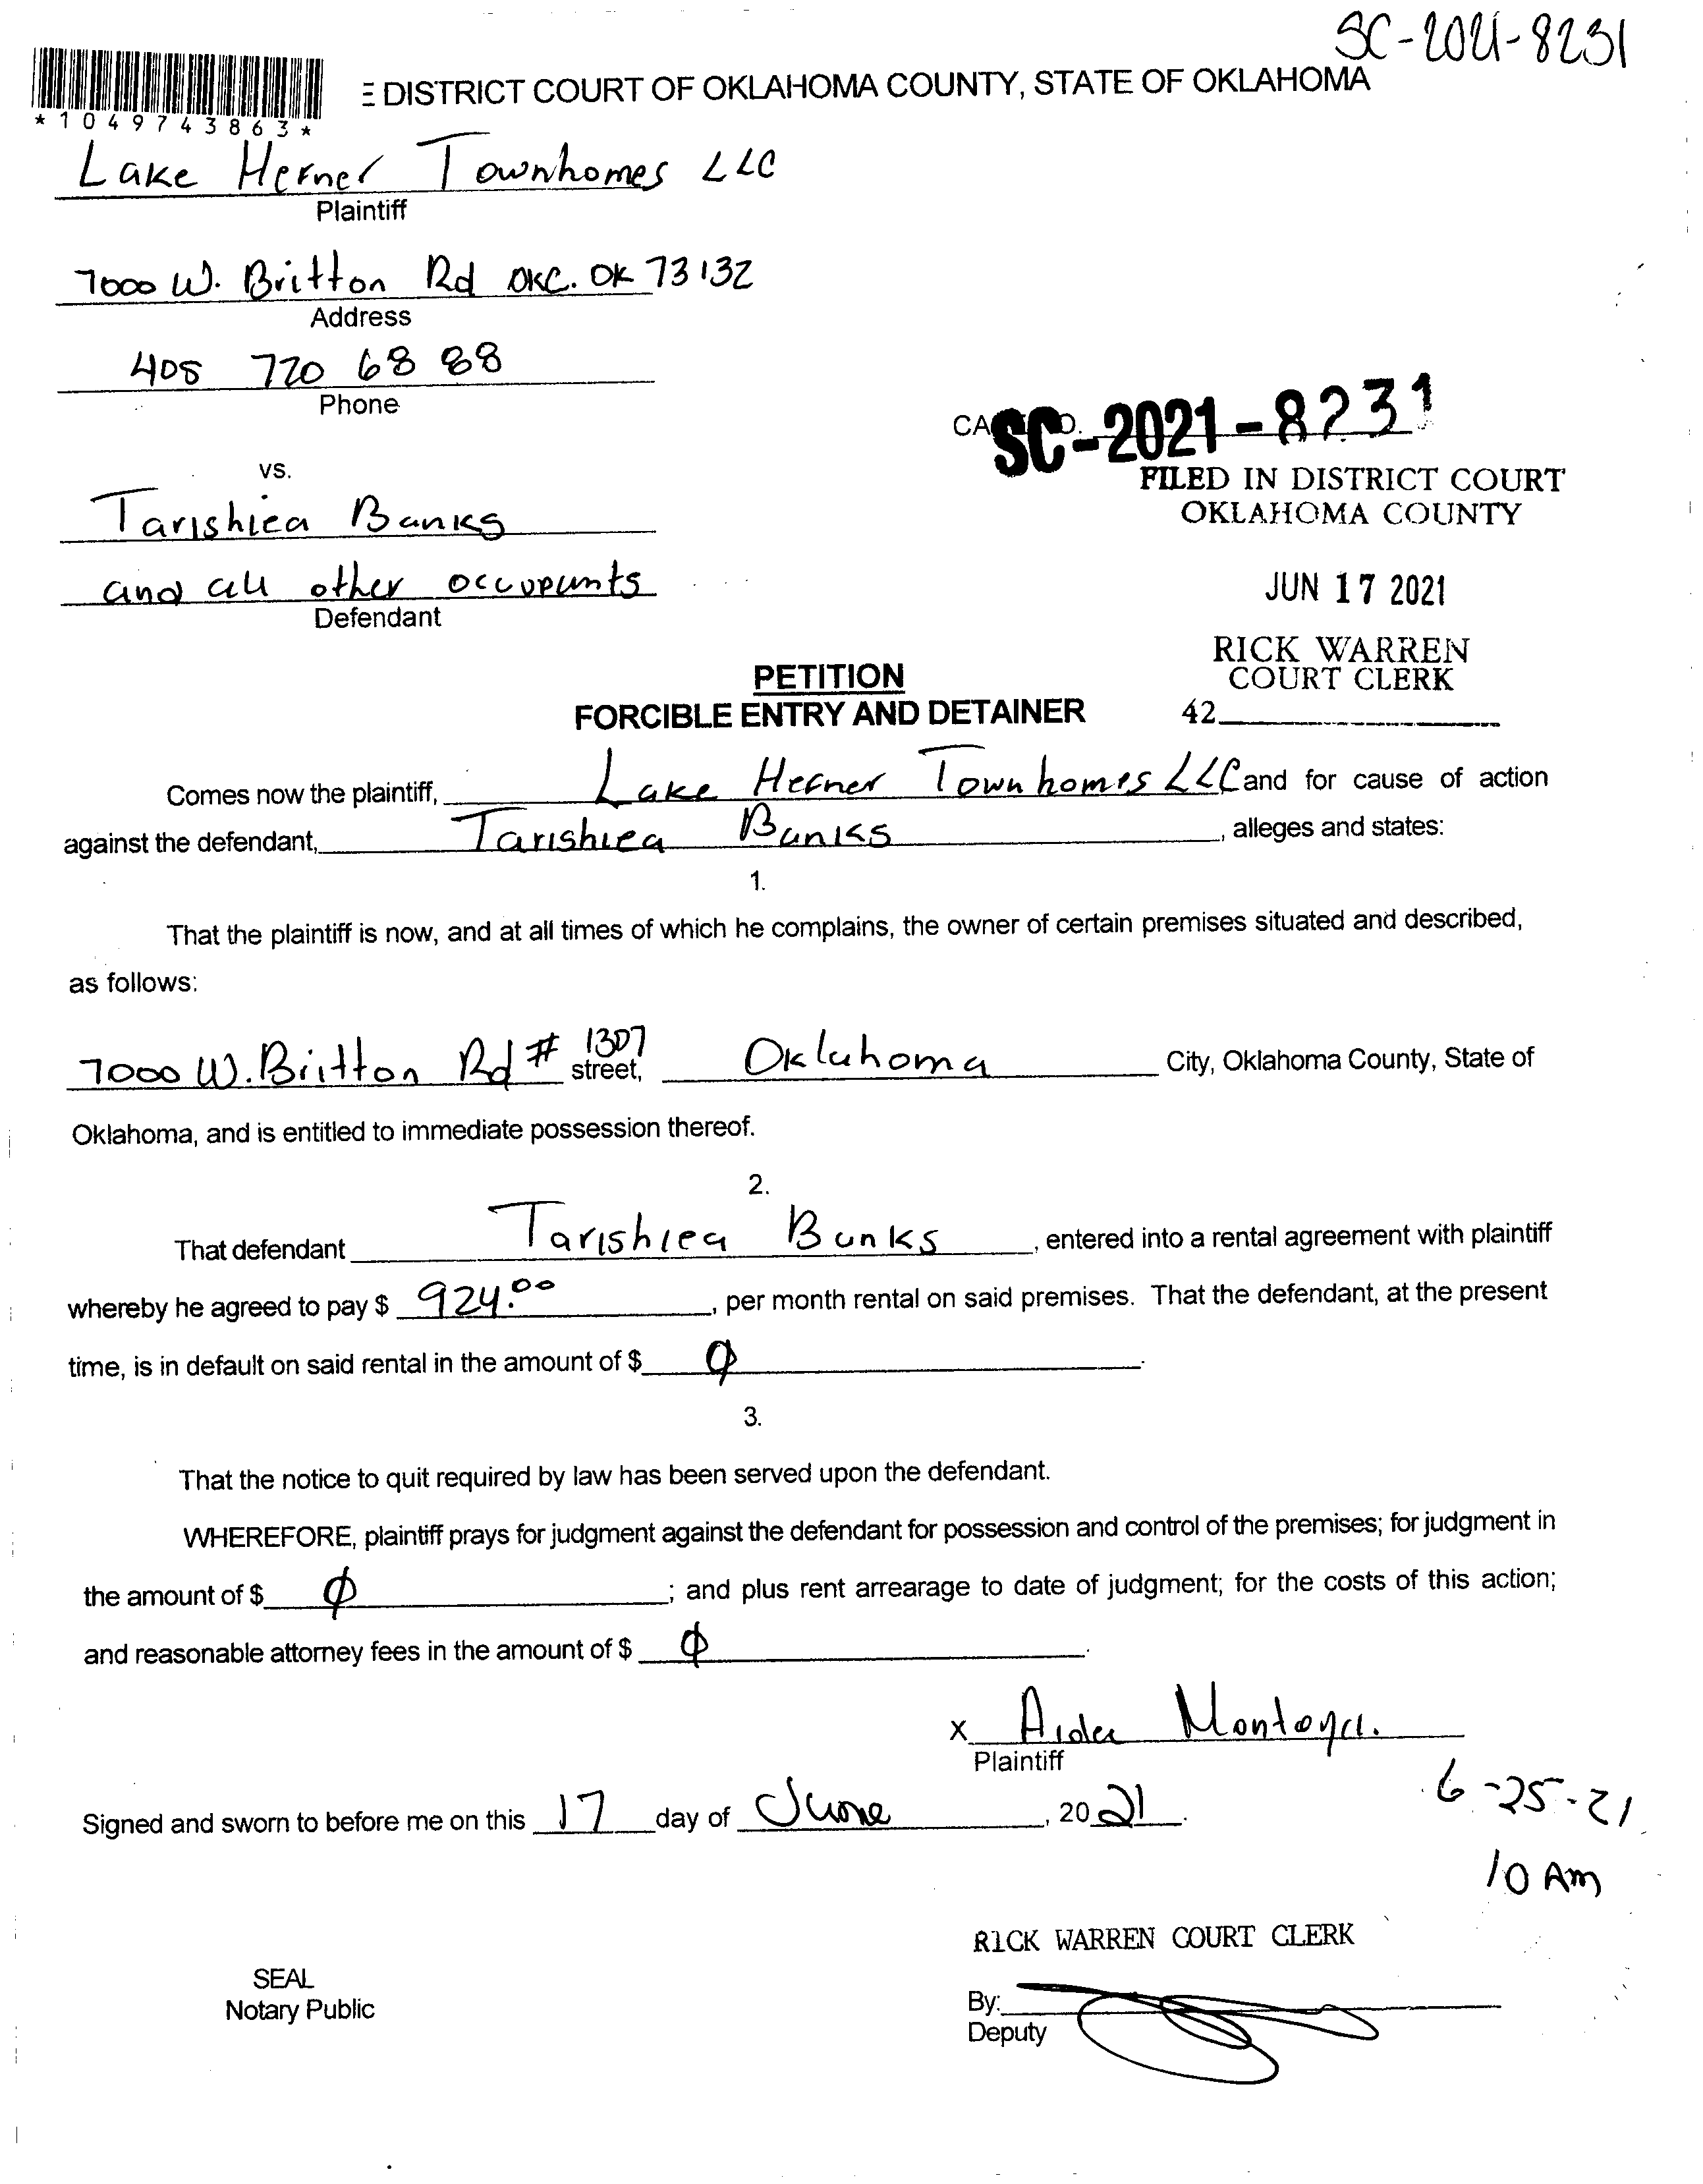 SC-2021-8231
E DISTRICT COURT OF OKLAHOMA COUNTY, STATE OF OKLAHOMA
*1049743863*
Lake Hefner Townhomes LLC
Plaintiff
7000 W. Britton Rd OKC. OK 73132
Address
405 720 68 88
Phone
CA O. SC-2021-8231
FILED IN DISTRICT COURT
OKLAHOMA COUNTY
vs.
Tarishiea Banks
and all other occupants
Defendant
JUN 17 2021
RICK WARREN
COURT CLERK
42
PETITION
FORCIBLE ENTRY AND DETAINER
Comes now the plaintiff, Lake Hefner Townhomes LLC and for cause of action
against the defendant, Tarishiea Banks, alleges and states:
1.
That the plaintiff is now, and at all times of which he complains, the owner of certain premises situated and described,
as follows:
7000 W. Britton Rd # 1307 street, Oklahoma City, Oklahoma County, State of
Oklahoma, and is entitled to immediate possession thereof.
2.
That defendant Tarishiea Banks, entered into a rental agreement with plaintiff
whereby he agreed to pay $ 924.00, per month rental on said premises. That the defendant, at the present
time, is in default on said rental in the amount of $ 0.
3.
That the notice to quit required by law has been served upon the defendant.
WHEREFORE, plaintiff prays for judgment against the defendant for possession and control of the premises; for judgment in
the amount of $ 0; and plus rent arrearage to date of judgment; for the costs of this action;
and reasonable attorney fees in the amount of $ 0.
x Aida Montoya.
Plaintiff
Signed and sworn to before me on this 17 day of June, 2021.
6-25-21
10 AM
RICK WARREN COURT CLERK
SEAL
Notary Public
By:
Deputy